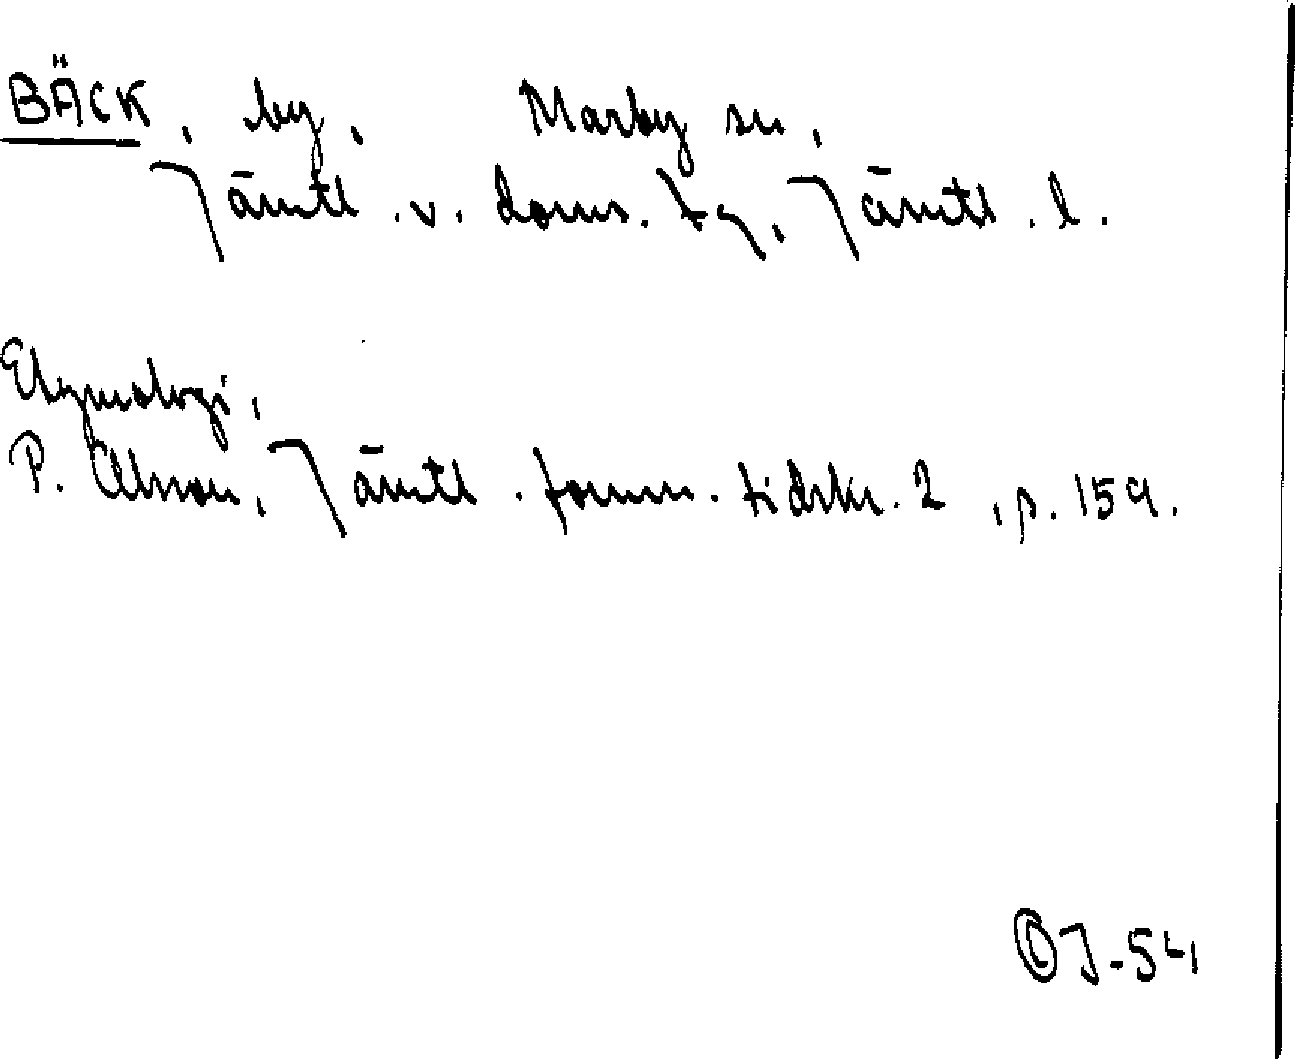 BÄCK, by, Marby sn,
Jämtl. v. doms. tg, Jämtl. l.
Etymologi,
P. Olsson, Jämtl. fornm. tidskr. 2, p. 159.
ⒸJ-54